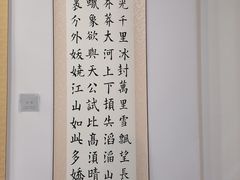 光千里冰封萬里雪飄望長
莽莽大河上下頓失滔滔山
蠟象欲與天公試比高須晴
裹分外妖嬈江山如此多嬌